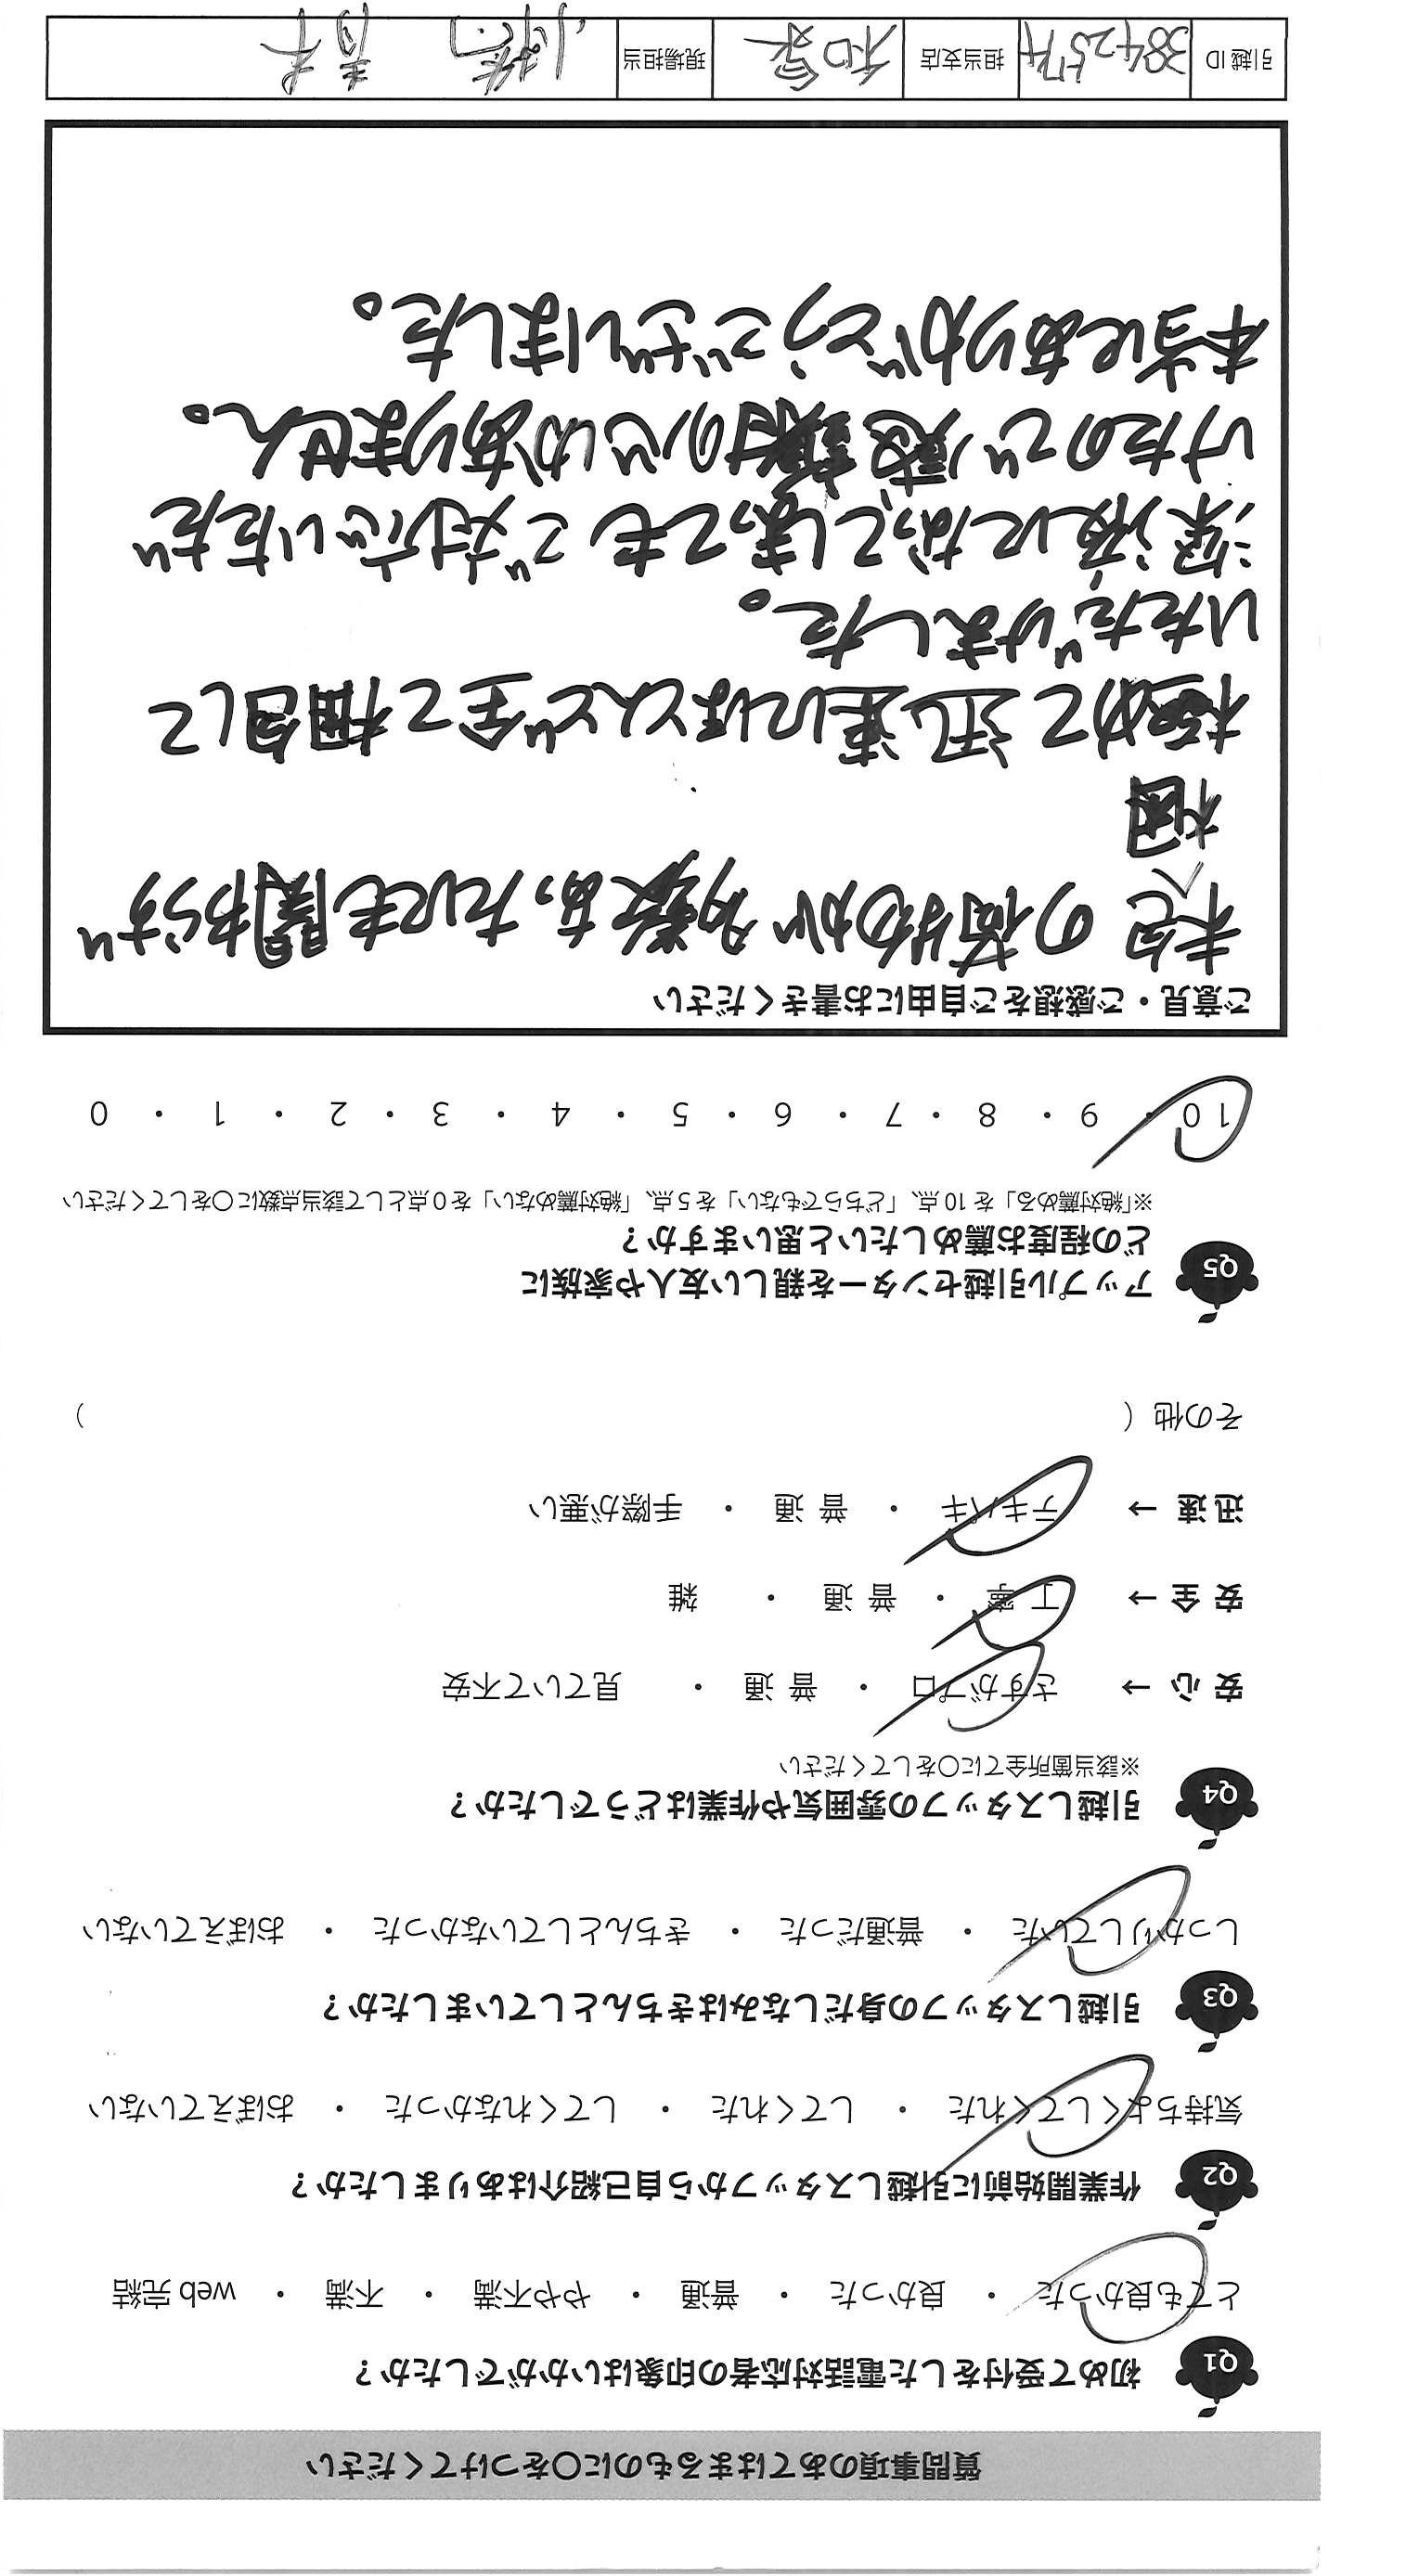 質問事項のあてはまるものに○をつけてください
Q1 初めて受付をした電話対応者の印象はいかがでしたか？
とても良かった ・ 良かった ・ 普通 ・ やや不満 ・ 不満 ・ web 完結
Q2 作業開始前に引越しスタッフから自己紹介はありましたか？
気持ちよくしてくれた ・ してくれた ・ してくれなかった ・ おぼえていない
Q3 引越しスタッフの身だしなみはきちんとしていましたか？
しっかりしていた ・ 普通だった ・ きちんとしていなかった ・ おぼえていない
Q4 引越しスタッフの雰囲気や作業はどうでしたか？
※該当箇所全てに○をしてください
安 心 → さすがプロ ・ 普 通 ・ 見ていて不安
安 全 → 丁 寧 ・ 普 通 ・ 雑
迅 速 → テキパキ ・ 普 通 ・ 手際が悪い
その他（ ）
Q5 アップル引越センターを親しい友人や家族に
どの程度お薦めしたいと思いますか？
※「絶対薦める」を 10 点、「どちらでもない」を 5 点、「絶対薦めない」を 0 点として該当点数に○をしてください
10 ・ 9 ・ 8 ・ 7 ・ 6 ・ 5 ・ 4 ・ 3 ・ 2 ・ 1 ・ 0
ご意見・ご感想をご自由にお書きください
未梱包の荷物が多数あったにも関わらず
極めて迅速にほとんど全て梱包して
いただけました。
深夜になってしまってもご対応いただ
けたので感謝の心しかありません。
本当にありがとうございました。
引越 ID 3842574 担当支店 和泉 現場担当 青木